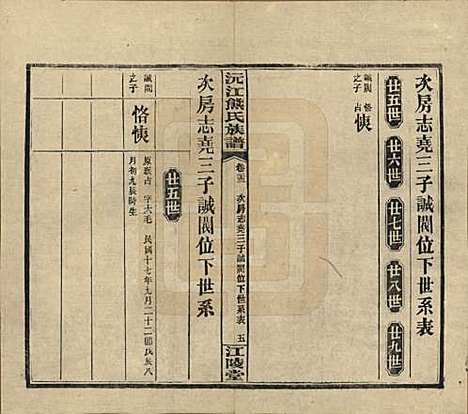 次房志堯三子誠閎位下世系表
廿五世 廿六世 廿七世 廿八世 廿九世
誠閎 恪
之子 占
㥦
沅江熊氏族譜 卷 次房志堯三子誠閎位下世系表 五 江陵堂
次房志堯三子誠閎位下世系
廿五世
誠閎
之子
恪㥦
原派占 字大毛 民國十七年九月二十二
月初九辰時生